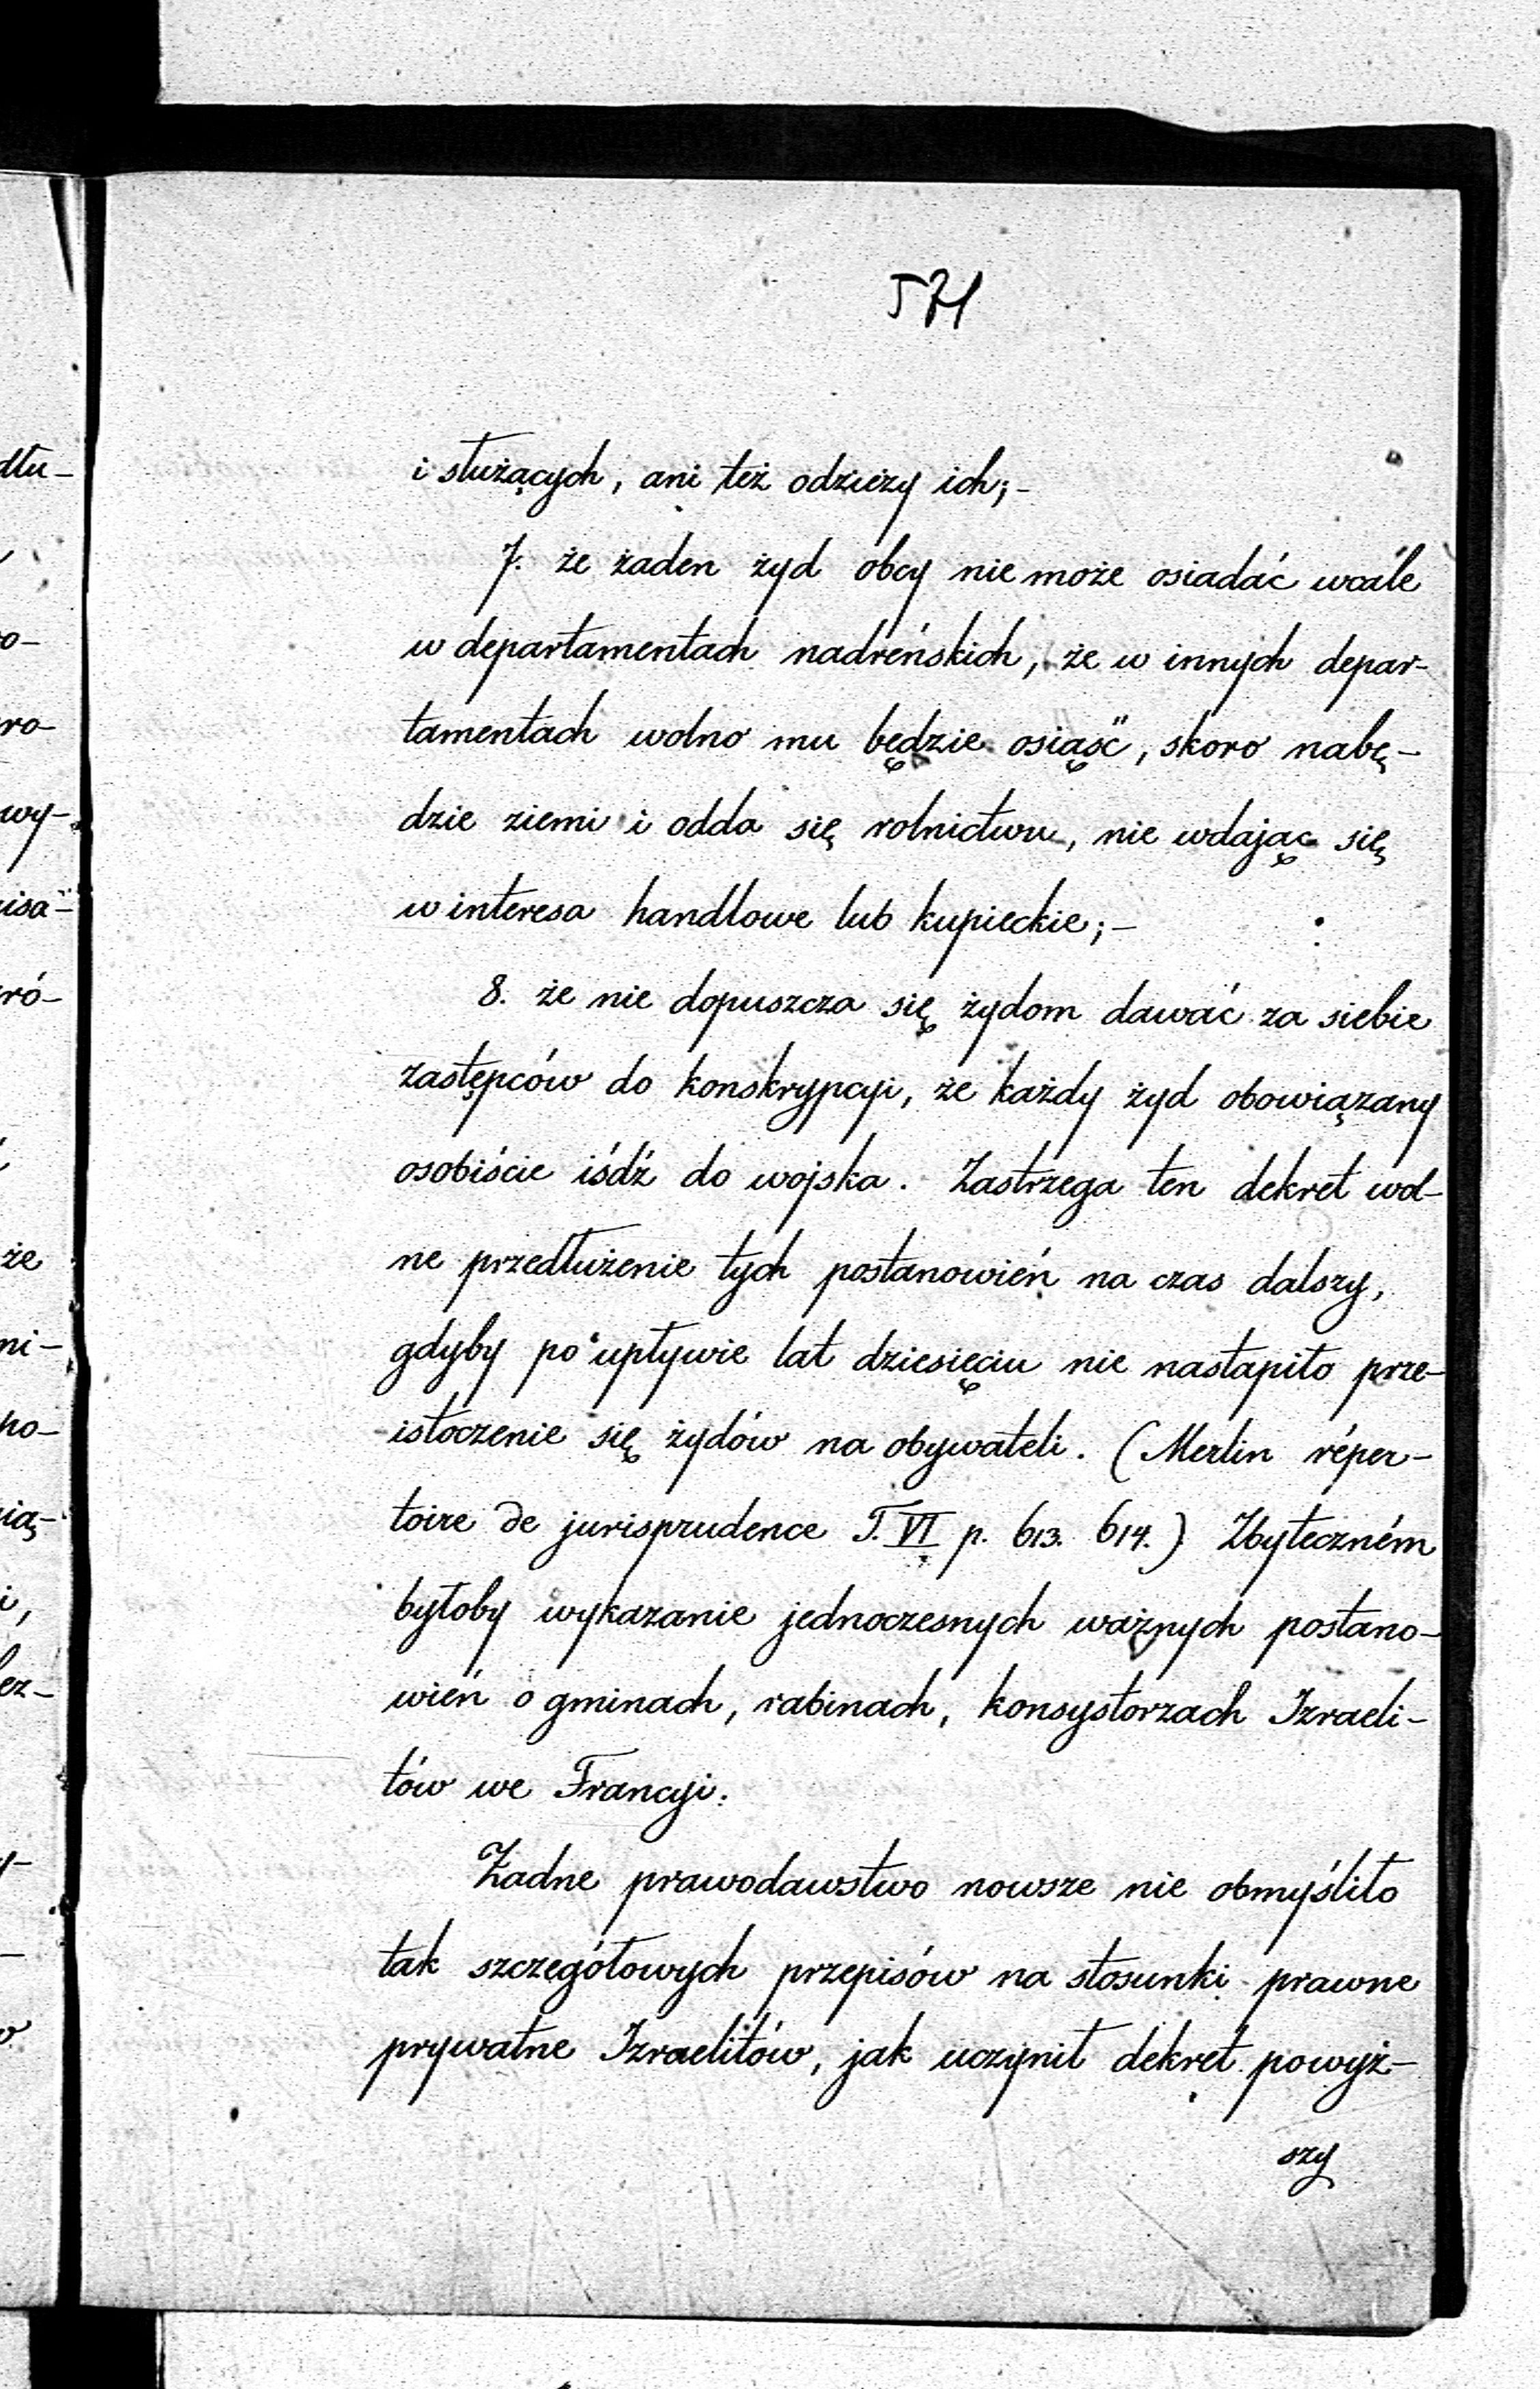 571
i służących, ani też odzieży ich;-
7. że żaden żyd obcy nie może osiadać wcale
w departamentach nadreńskich, że w innych depar-
tamentach wolno mu będzie osiąść, skoro nabę-
dzie ziemi i odda się rolnictwu, nie wdając się
w interesa handlowe lub kupieckie;-
8. że nie dopuszcza się żydom dawać za siebie
zastępców do konskrypcyi, że każdy żyd obowiązany
osobiście iśdź do wojska. Zastrzega ten dekret wol-
ne przedłużenie tych postanowień na czas dalszy,
gdyby po upływie lat dziesięciu nie nastapiło prze-
istoczenie się żydów na obywateli. (Merlin réper-
toire de jurisprudence T. VI p. 613. 614.) Zbyteczném
byłoby wykazanie jednoczesnych ważnych postano-
wień o gminach, rabinach, konsystorzach Izraeli-
tów we Francyi.
Żadne prawodawstwo nowsze nie obmyśliło
tak szczegółowych przepisów na stosunki prawne
prywatne Izraelitów, jak uczynił dekret powyż-
szy